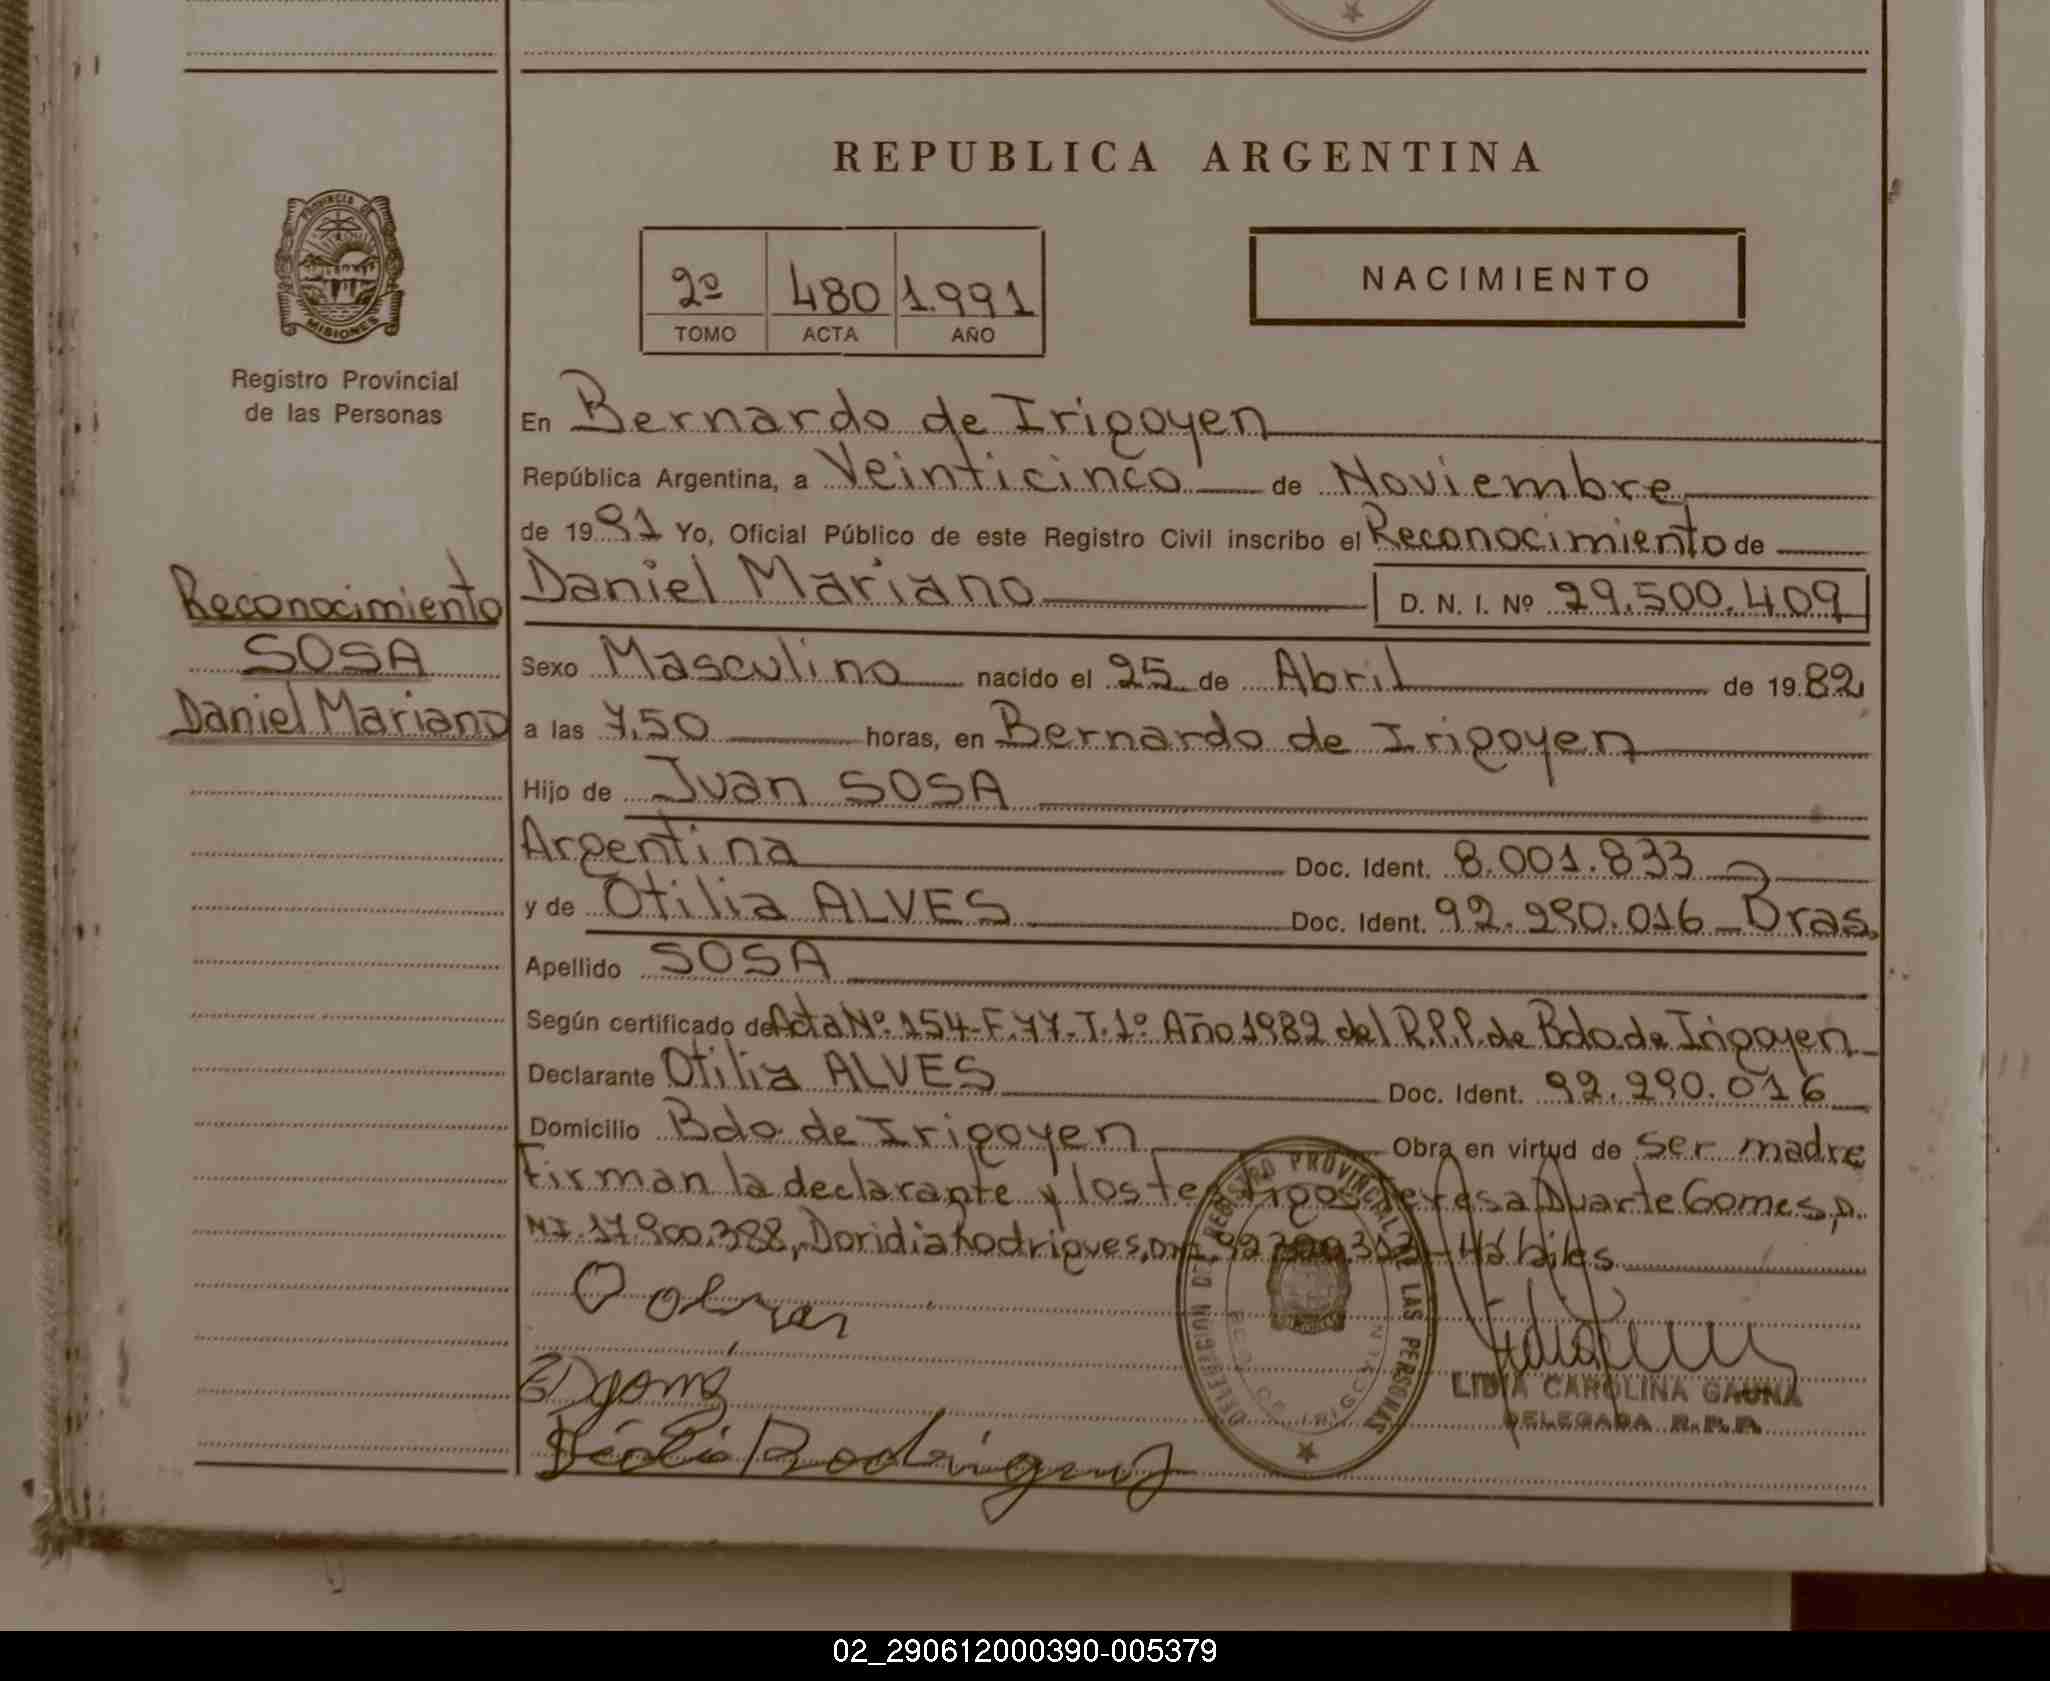 REPUBLICA ARGENTINA
PROVINCIA DE
MISIONES
Registro Provincial
de las Personas
2º 480 1.991
TOMO ACTA AÑO
NACIMIENTO
En Bernardo de Irigoyen
República Argentina, a Veinticinco de Noviembre
de 1991 Yo, Oficial Público de este Registro Civil inscribo el Reconocimiento de
Reconocimiento
SOSA
Daniel Mariano
Daniel Mariano D. N. I. Nº 29.500.409
Sexo Masculino nacido el 25 de Abril de 1982
a las 7,50 horas, en Bernardo de Irigoyen
Hijo de Juan SOSA
Argentina Doc. Ident. 8.001.833
y de Otilia ALVES Doc. Ident. 92.290.016 Bras.
Apellido SOSA
Según certificado de Acta Nº 154-F.77-T.1º Año 1982 del R.P.P. de Bdo. de Irigoyen
Declarante Otilia ALVES Doc. Ident. 92.290.016
Domicilio Bdo. de Irigoyen Obra en virtud de ser madre
Firman la declarante y los testigos Teresa Duarte Gomes, D.
NI. 17.900.388, Doridia Rodrigues, DNI. 92. Hábiles
DELEGACION DEL REGISTRO PROVINCIAL DE LAS PERSONAS
BDO. DE IRIGOYEN
LIDIA CAROLINA GAUNA
DELEGADA R.P.P.
Rodrigues
02_290612000390-005379